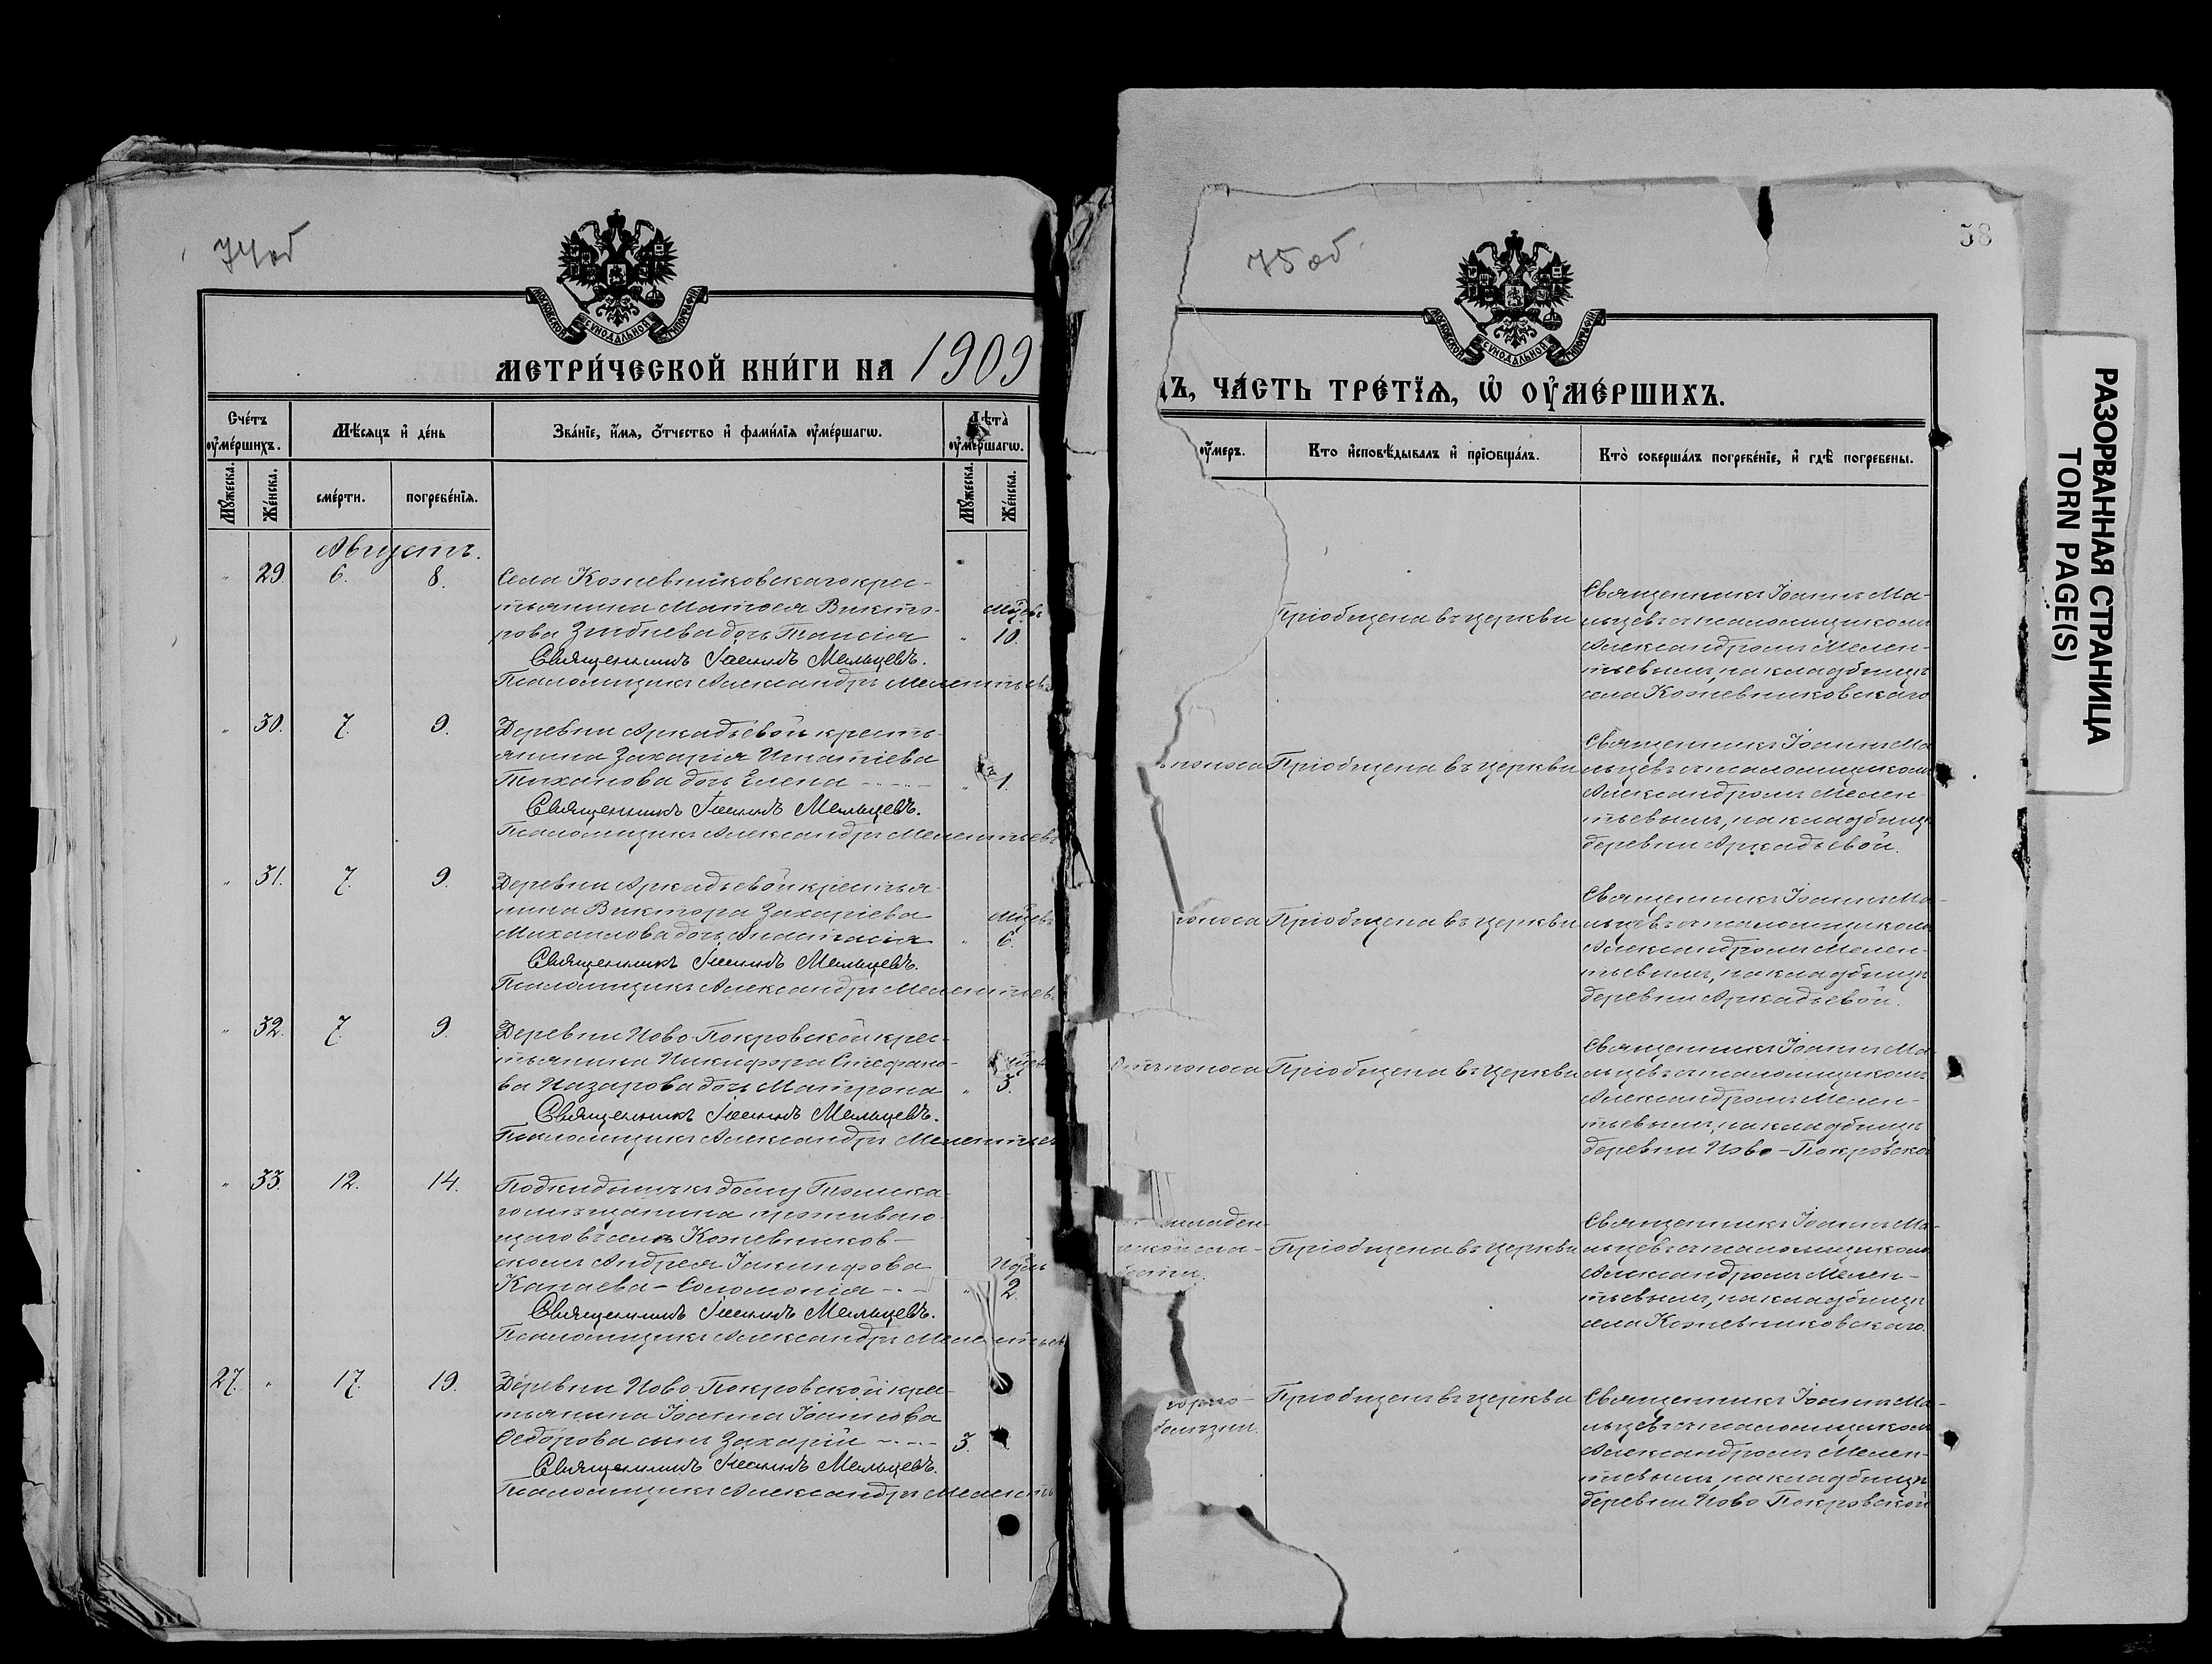 74об
МОСКОВСКОЙ СѴНОДАЛЬНОЙ ТИПОГРАФІИ
МЕТРИ́ЧЕСКОЙ КНИ́ГИ НА 1909
Сче́тъ оу҆ме́ршихъ.
Мѣ́сяцъ и҆ де́нь
Зва́нїе, и҆́мя, ѻ҆́тчество и҆ фами́лїя оу҆ме́ршагѡ.
Лѣта̀ оу҆ме́ршагѡ.
Мꙋ́жеска. Же́нска.
сме́рти. погребе́нїя.
Мꙋ́жеска. Же́нска.
Августъ.
" 29. 6. 8. Села Кожевниковскаго крес-
тьянина Матѳея Викто- Мѣсѣвъ
рова Зыбнева дочь Таисія " 10.
Священникъ Іоаннъ Мальцевъ.
Псаломщикъ Александръ Мелентьевъ
" 30. 7. 9. Деревни Аркадьевой кресть-
янина Захарія Игнатіева
Тиханова дочь Елена " 1.
Священникъ Іоаннъ Мальцевъ.
Псаломщикъ Александръ Мелентьевъ
" 31. 7. 9. Деревни Аркадьевой крестья-
нина Виктора Захаріева Мѣсѣвъ
Михаилова дочь Анастасія " 6.
Священникъ Іоаннъ Мальцевъ.
Псаломщикъ Александръ Мелентьевъ
" 32. 7. 9. Деревни Ново-Покровской крес-
тьянина Никифора Стефано-
ва Назарова дочь Матрона " 3.
Священникъ Іоаннъ Мальцевъ.
Псаломщикъ Александръ Мелентьев
" 33. 12. 14. Подкидышъ къ дому Томска-
го мѣщанина проживаю-
щаго въ селѣ Кожевников-
скомъ Андрея Іакинфова Нѣдѣль
Канаева - Соломонія " 2.
Священникъ Іоаннъ Мальцевъ.
Псаломщикъ Александръ Мелентьев
27. " 17. 19. Деревни Ново-Покровской крес-
тьянина Іоанна Іоаннова
Ѳедорова сынъ Захарій 3.
Священникъ Іоаннъ Мальцевъ.
Псаломщикъ Александръ Меленть
75об
58
МОСКОВСКОЙ СѴНОДАЛЬНОЙ ТИПОГРАФІИ
ДЪ, ЧА́СТЬ ТРЕ́ТЇѦ, Ѡ҆ ОУ҆МЕ́РШИХЪ.
оу҆́меръ.
Кто и҆сповѣ́дывалъ и҆ прїѡбща́лъ.
Кто̀ соверша́лъ погребе́нїе, и҆ гдѣ̀ погребены.
Священникъ Іоаннъ Ма-
Пріобщена въ церкви
льцевъ съ псаломщикомъ
Александромъ Мелен-
тьевымъ, на кладбищѣ
села Кожевниковскаго
Священникъ Іоаннъ Ма
поноса Пріобщена въ церкви
льцевъ съ псаломщикомъ
Александромъ Мелен-
тьевымъ, на кладбищѣ
деревни Аркадьевой.
Священникъ Іоаннъ Ма-
поноса Пріобщена въ церкви
льцевъ съ псаломщикомъ
Александромъ Мелен-
тьевымъ, на кладбищѣ
деревни Аркадьевой.
Священникъ Іоаннъ Ма-
Отъ поноса Пріобщена въ церкви
льцевъ съ псаломщикомъ
Александромъ Мелен-
тьевымъ, на кладбищѣ
деревни Ново-Покровско
младен-
ческой сла-
бости.
Пріобщена въ церкви
Священникъ Іоаннъ Ма-
льцевъ съ псаломщикомъ
Александромъ Мелен-
тьевымъ, на кладбищѣ
села Кожевниковскаго.
горло-
болѣзни.
Пріобщенъ въ церкви
Священникъ Іоаннъ Ма-
льцевъ съ псаломщикомъ
Александромъ Мелен-
тьевымъ, на кладбищѣ
деревни Ново Покровской
РАЗОРВАННАЯ СТРАНИЦА
TORN PAGE(S)